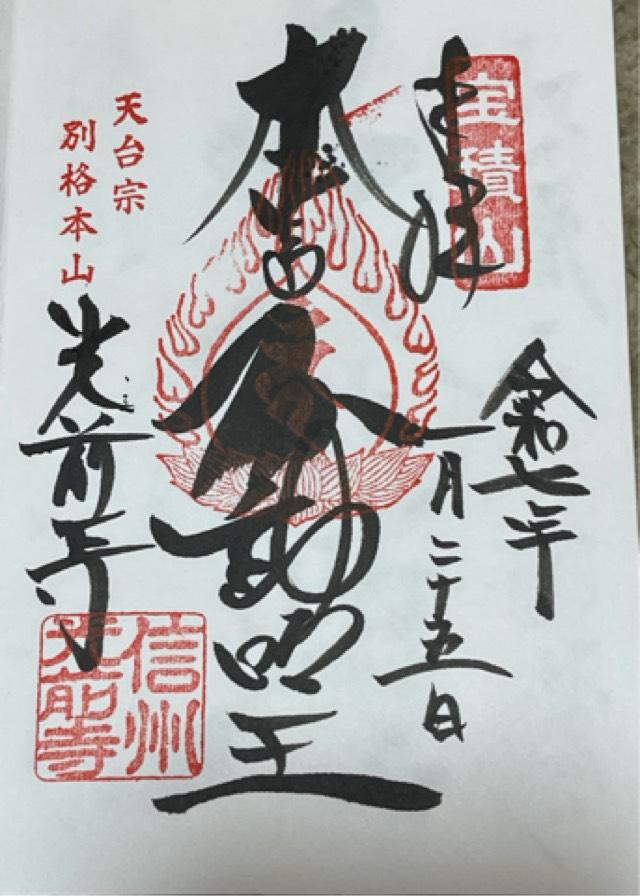 奉拝
宝積山
令和七年
一月二十五日
本尊
不動明王
天台宗
別格本山
光前寺
信州
光前寺